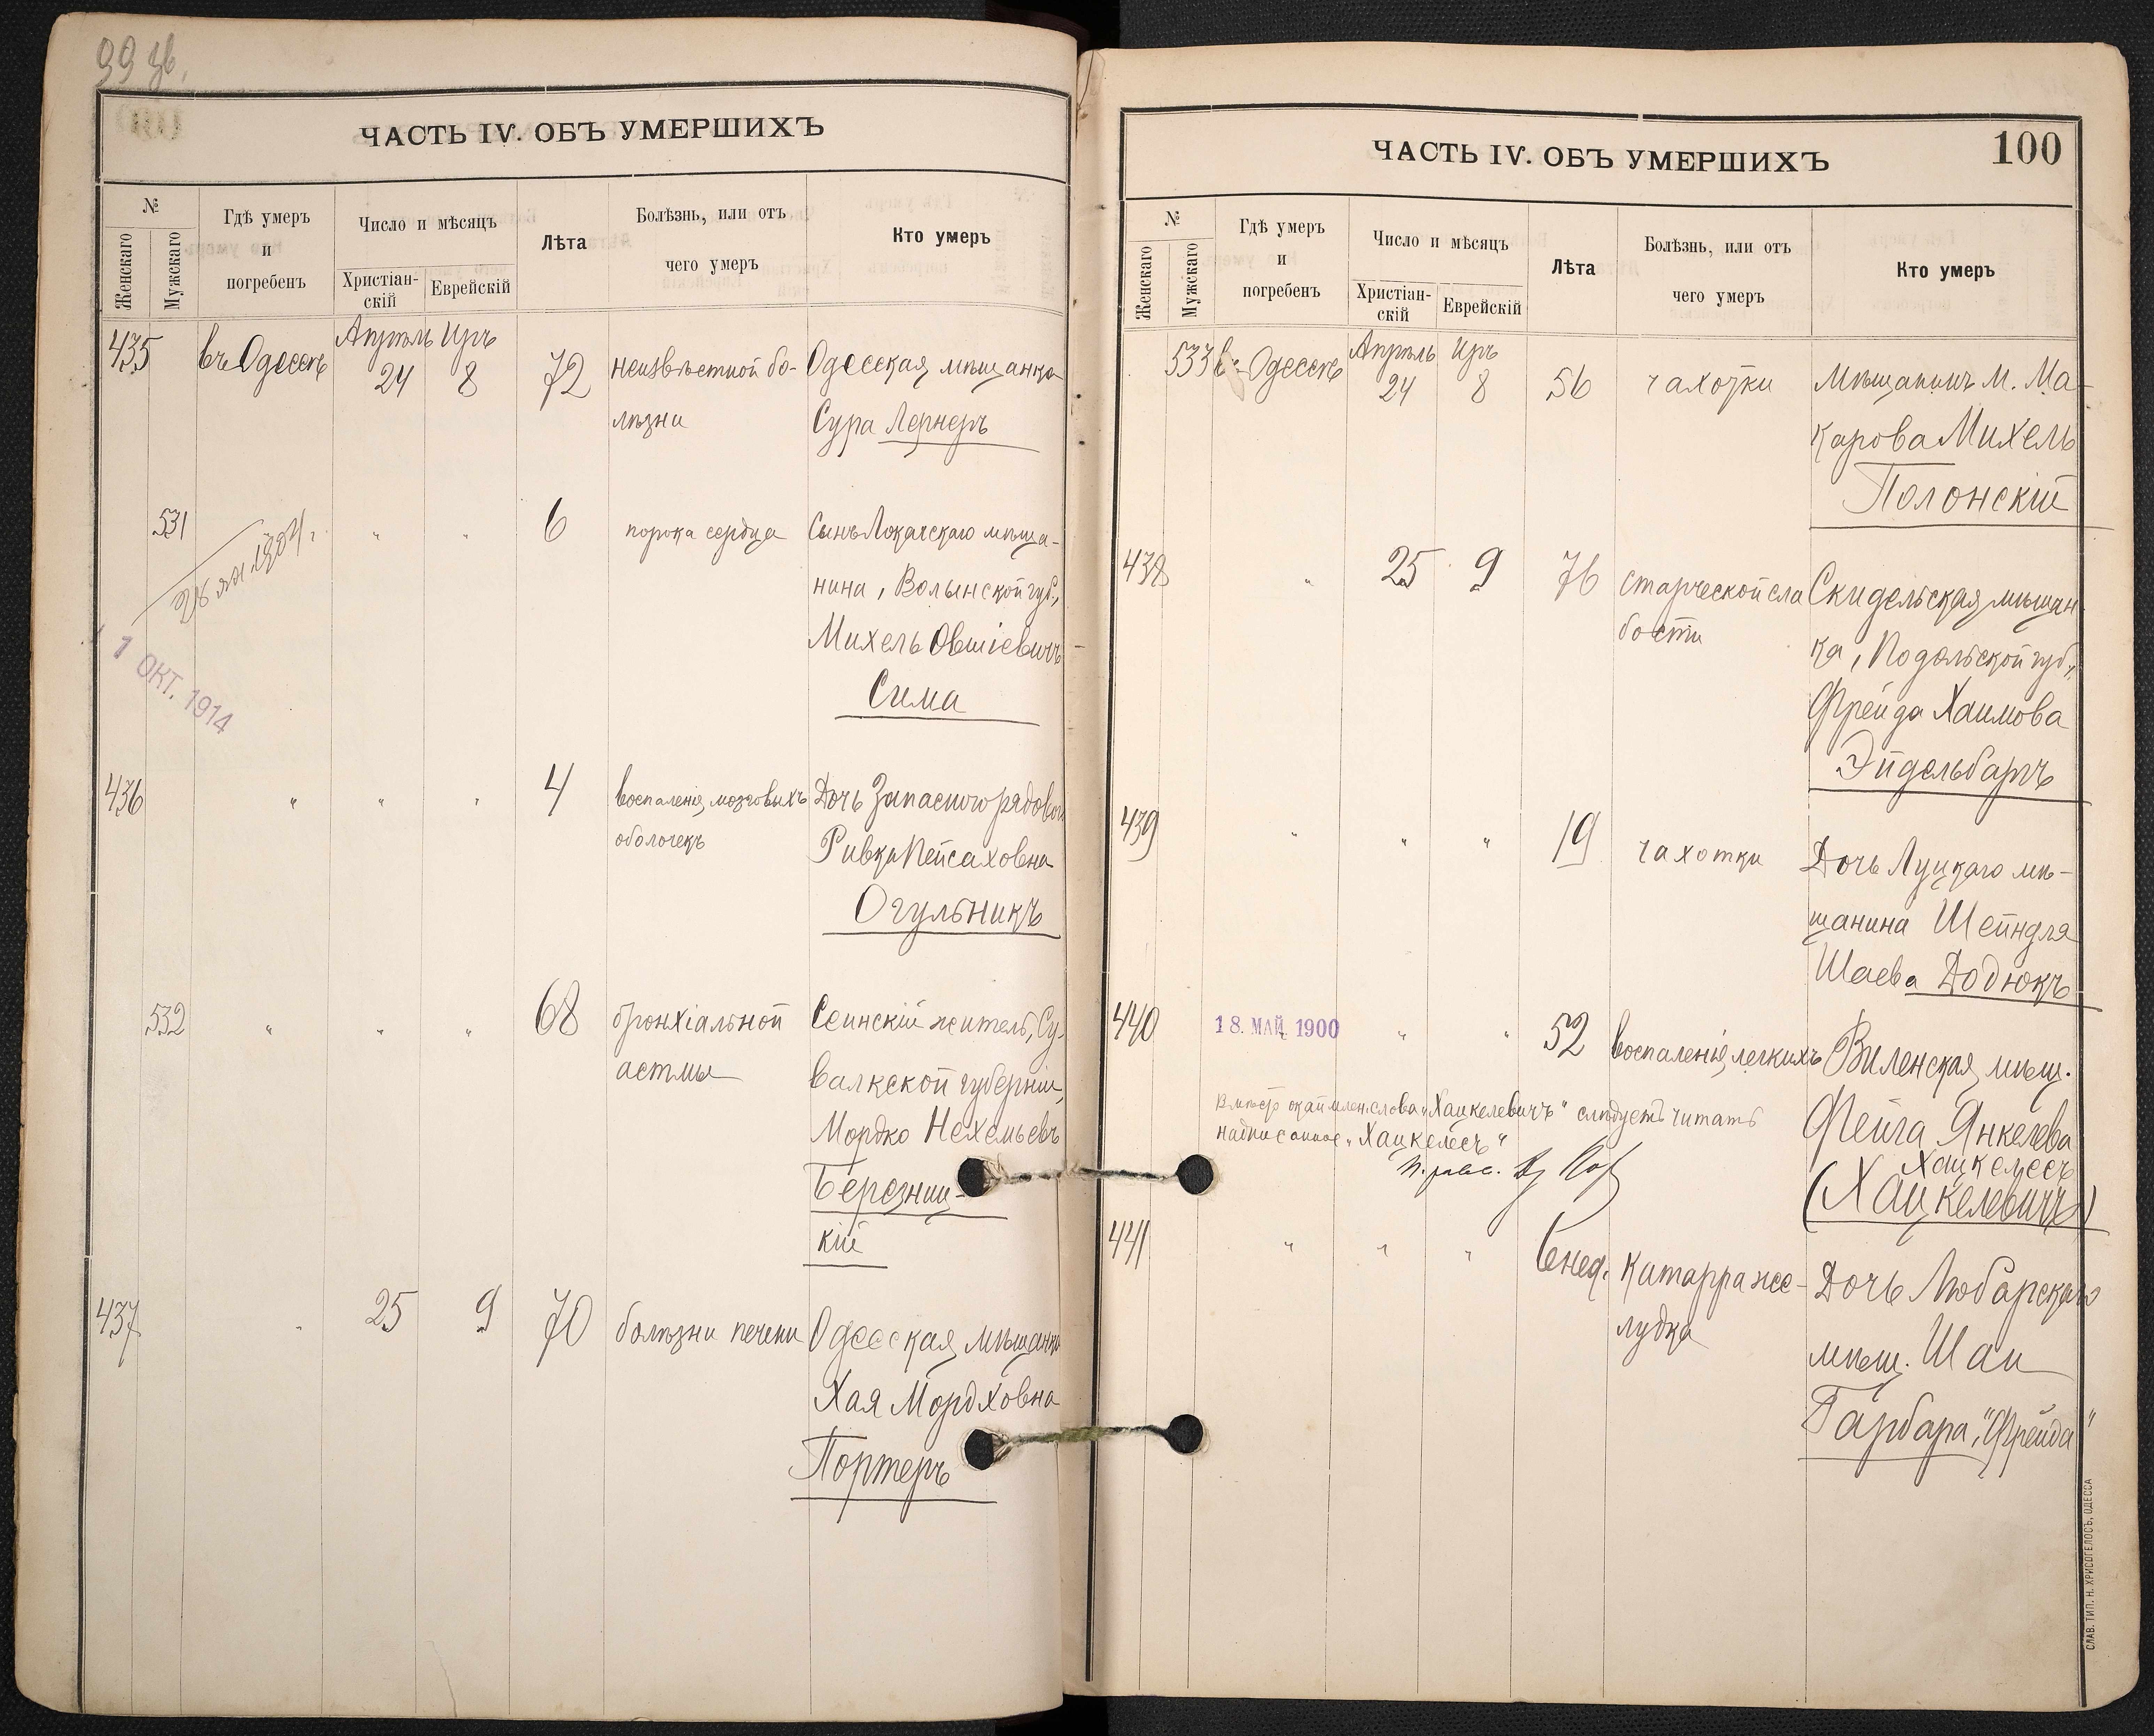 99 об.
ЧАСТЬ IV. ОБЪ УМЕРШИХЪ
№
Женскаго
Мужскаго
Гдѣ умеръ
и
погребенъ
Число и мѣсяцъ
Христіан-
скій
Еврейскій
Лѣта
Болѣзнь, или отъ
чего умеръ
Кто умеръ
435 въ Одессѣ Апрѣль 24 Иръ 8 72 неизвѣстной бо- Одесская мѣщанка
лѣзни Сура Лернеръ
531 " " 6 порока сердца Сынъ Локачскаго мѣща-
28 ян. 1904 г.
нина, Волынской губ.,
Михель Овшіевичъ
Сима
1 ОКТ. 1914
436 " " " 4 воспаленія мозговыхъ Дочь Запасного рядового
оболочекъ Ривка Пейсаховна
Огульникъ
532 " " " 68 бронхіальной Сеинскій житель, Су-
астмы валкской губерніи,
Мордко Нехемьевъ
Березниц-
кій
437 " 25 9 70 болѣзни печени Одесская мѣщанка
Хая Мордховна
Портеръ
ЧАСТЬ IV. ОБЪ УМЕРШИХЪ
100
№
Женскаго
Мужскаго
Гдѣ умеръ
и
погребенъ
Число и мѣсяцъ
Христіан-
скій
Еврейскій
Лѣта
Болѣзнь, или отъ
чего умеръ
Кто умеръ
533 въ Одессѣ Апрѣль 24 Иръ 8 56 чахотки Мѣщанинъ м. Ма-
карова Михель
Полонскій
438 " 25 9 76 старческой сла Скидельская мѣщан-
бости ка, Подольской губ.,
Фрейда Хаимова
Эйдельбартъ
439 " " " 19 чахотки Дочь Луцкаго мѣ-
щанина Шейндля
Шаева Додюкъ
440 18. МАЙ 1900 " " 52 воспаленія легкихъ Виленская мѣщ.
Вмѣсто окаймлен. слова "Хацкелевичъ" слѣдуетъ читать Фейга Янкелева
надписанное "Хацкелесъ" Хацкелесъ
(Хацкелевичъ)
441 " " " 6 нед. катарра же- Дочь Любарскаго
лудка мѣщ. Шаи
Гарбара, "Фрейда"
СЛАВ. ТИП. Н. ХРИСОГЕЛОСЪ, ОДЕССА